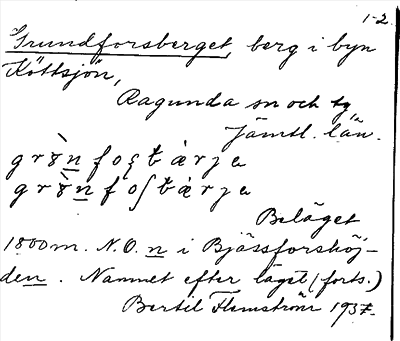 1-2.
Grundforsberget, berg i byn
Köttsjön,
Ragunda sn och tg
Jämtl. län.
Beläget
1800 m. N.O. n i Bjässforshöj-
den. Namnet efter läget (forts.)
Bertil Flemström 1937.